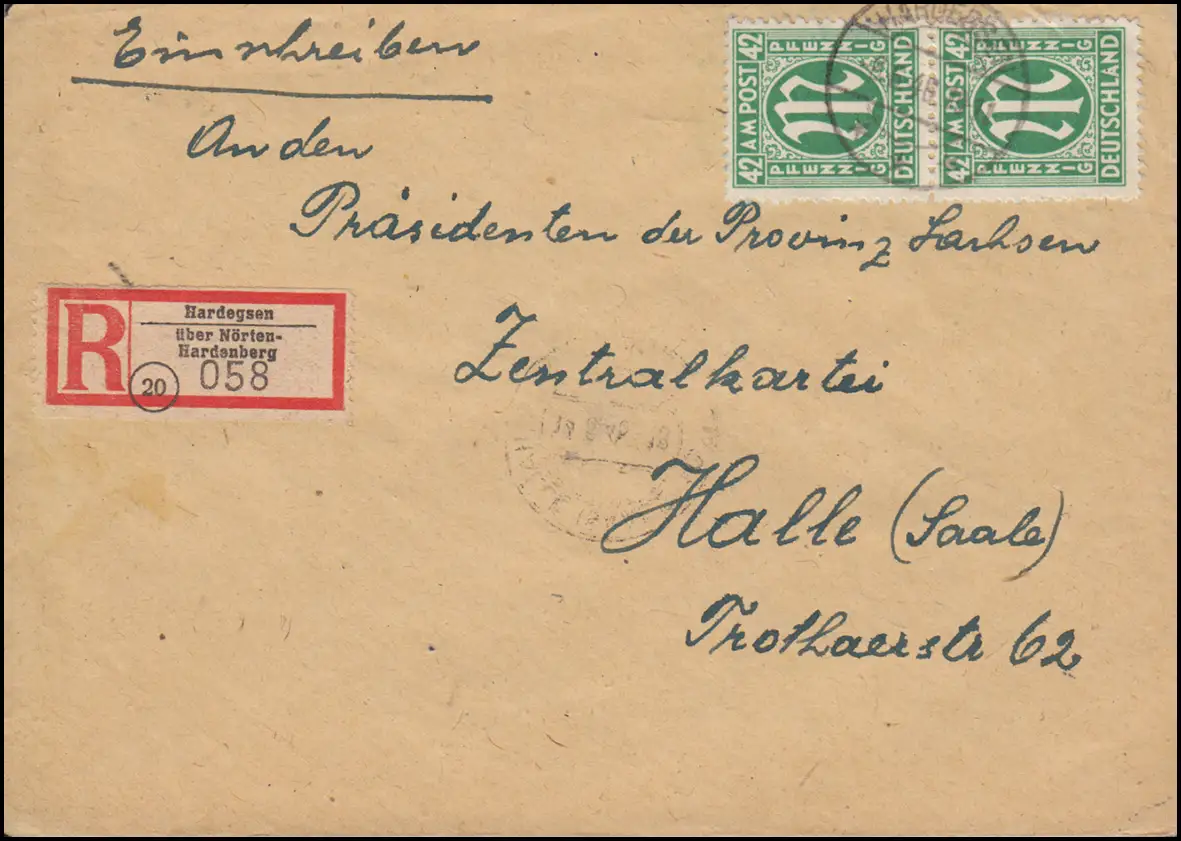 Einschreiben
42 AM POST 42
PFENNIG
PFENNIG
DEUTSCHLAND
42 AM POST 42
PFENNIG
PFENNIG
DEUTSCHLAND
An den
Präsidenten der Provinz Sachsen
R
Hardegsen
über Nörten-
Hardenberg
20
058
Zentralkartei
Halle (Saale)
Trothaerstr 62